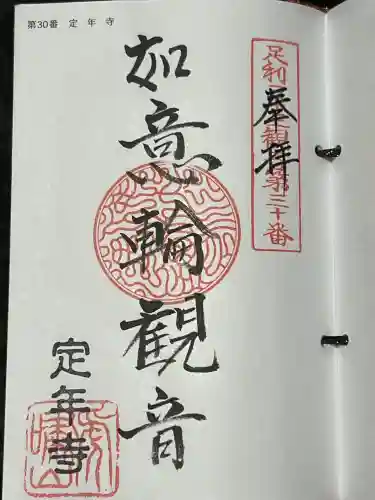 第30番 定年寺
奉拝
足利 観 第三十番
如意輪観音
定年寺